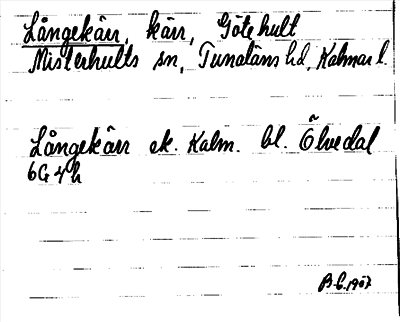 Långekärr, kärr, Götehult
Misterhults sn, Tunaläns hd, Kalmar l.
Långekärr ek. Kalm. bl. Ölvedal
6G4h
B.G. 1907